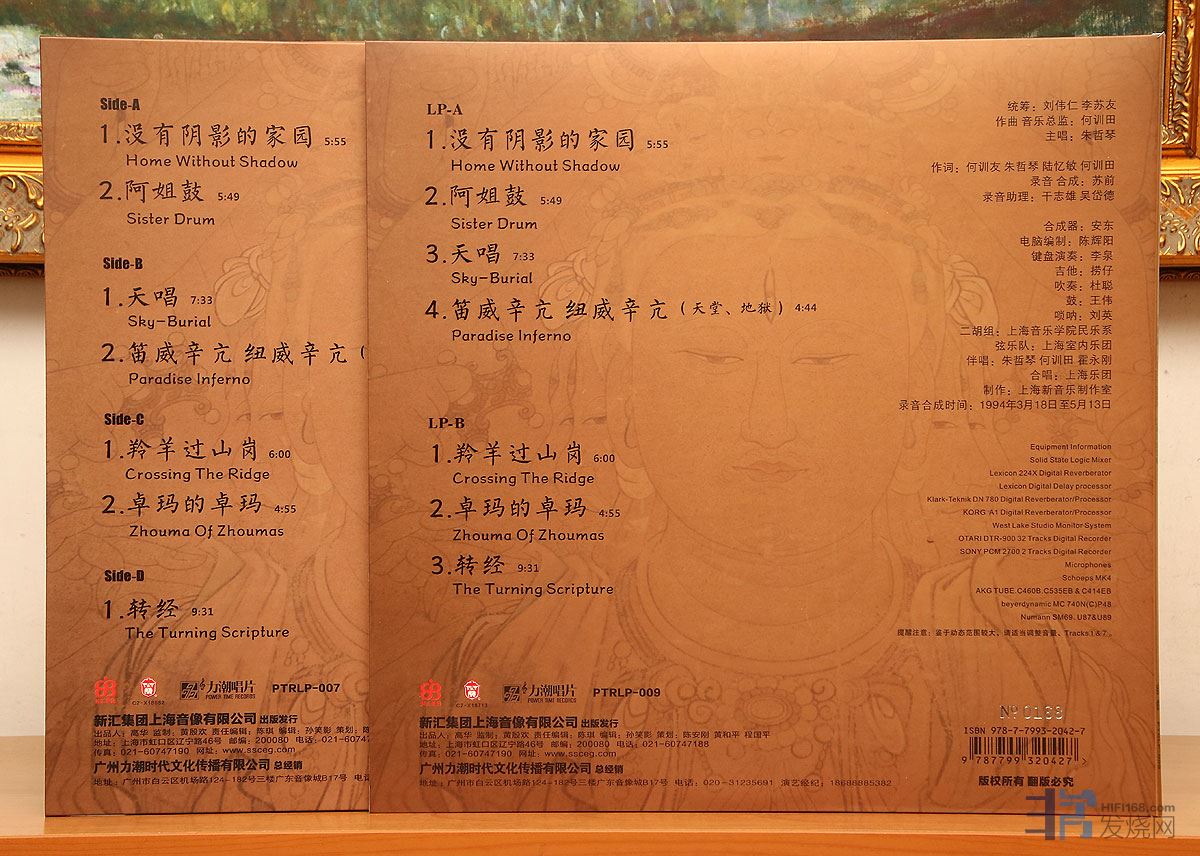 Side-A
1.没有阴影的家园 5:55
Home Without Shadow
2.阿姐鼓 5:49
Sister Drum
Side-B
1.天唱 7:33
Sky-Burial
2.笛威辛亢 纽威辛亢（
Paradise Inferno
Side-C
1.羚羊过山岗 6:00
Crossing The Ridge
2.卓玛的卓玛 4:55
Zhouma Of Zhoumas
Side-D
1.转经 9:31
The Turning Scripture
力潮唱片 PTRLP-007
POWER TIME RECORDS
新汇集团上海音像有限公司 出版发行
出品人：高华 监制：黄殷欢 责任编辑：陈琪 编辑：孙笑影 策划：陈
地址：上海市虹口区辽宁路46号 邮编：200080 电话：021-6074
传真：021-60747190 网址：www.ssceg.com
广州力潮时代文化传播有限公司 总经销
地址：广州市白云区机场路124-182号三楼广东音像城B17号 电
LP-A
1.没有阴影的家园 5:55
Home Without Shadow
2.阿姐鼓 5:49
Sister Drum
3.天唱 7:33
Sky-Burial
4.笛威辛亢 纽威辛亢（天堂、地狱）4:44
Paradise Inferno
LP-B
1.羚羊过山岗 6:00
Crossing The Ridge
2.卓玛的卓玛 4:55
Zhouma Of Zhoumas
3.转经 9:31
The Turning Scripture
力潮唱片 PTRLP-009
POWER TIME RECORDS
新汇集团上海音像有限公司 出版发行
出品人：高华 监制：黄殷欢 责任编辑：陈琪 编辑：孙笑影 策划：陈安刚 黄和平 程国平
地址：上海市虹口区辽宁路46号 邮编：200080 电话：021-60747188
传真：021-60747190 网址：www.ssceg.com
广州力潮时代文化传播有限公司 总经销
地址：广州市白云区机场路124-182号三楼广东音像城B17号 电话：020-31235691 演艺经纪：18688885382
统筹：刘伟仁 李苏友
作曲 音乐总监：何训田
主唱：朱哲琴
作词：何训友 朱哲琴 陆忆敏 何训田
录音 合成：苏前
录音助理：干志雄 吴岱德
合成器：安东
电脑编制：陈辉阳
键盘演奏：李泉
吉他：捞仔
吹奏：杜聪
鼓：王伟
唢呐：刘英
二胡组：上海音乐学院民乐系
弦乐队：上海室内乐团
伴唱：朱哲琴 何训田 霍永刚
合唱：上海乐团
制作：上海新音乐制作室
录音合成时间：1994年3月18日至5月13日
Equipment Information
Solid State Logic Mixer
Lexicon 224X Digital Reverberator
Lexicon Digital Delay processor
Klark-Teknik DN 780 Digital Reverberator/Processor
KORG A1 Digital Reverberator/Processor
West Lake Studio Monitor System
OTARI DTR-900 32 Tracks Digital Recorder
SONY PCM 2700 2 Tracks Digital Recorder
Microphones
Schoeps MK4
AKG TUBE.C460B.C535EB & C414EB
beyerdynamic MC 740N(C)P48
Numann SM69. U87&U89
提醒注意：鉴于动态范围较大、请适当调整音量、Tracks 1 & 7 。
Nº 0168
ISBN 978-7-7993-2042-7
9 787799 320427 >
版权所有 翻版必究
HIFI168.com
发烧网